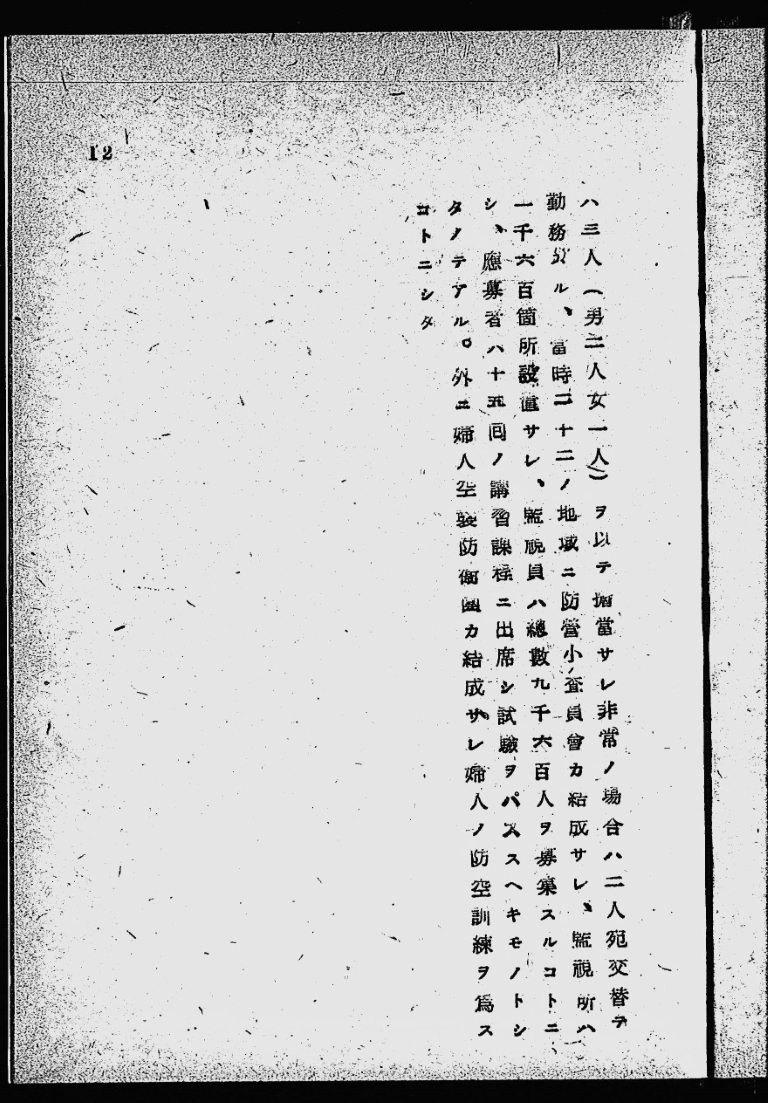 12
ハ三人(男二人女一人)ヲ以テ擔當サレ非常ノ場合ハ二人宛交替テ
勤務スル、當時二十二ノ地域ニ防營小査員會カ結成サレ、監視所ハ
一千六百箇所設置サレ、監視員ハ總數九千六百人ヲ募集スルコトニ
シ、應募者ハ十五囘ノ講習課程ニ出席シ試驗ヲパススヘキモノトシ
タノテアル。外ニ婦人空襲防衞團カ結成サレ婦人ノ防空訓練ヲ爲ス
コトニシタ